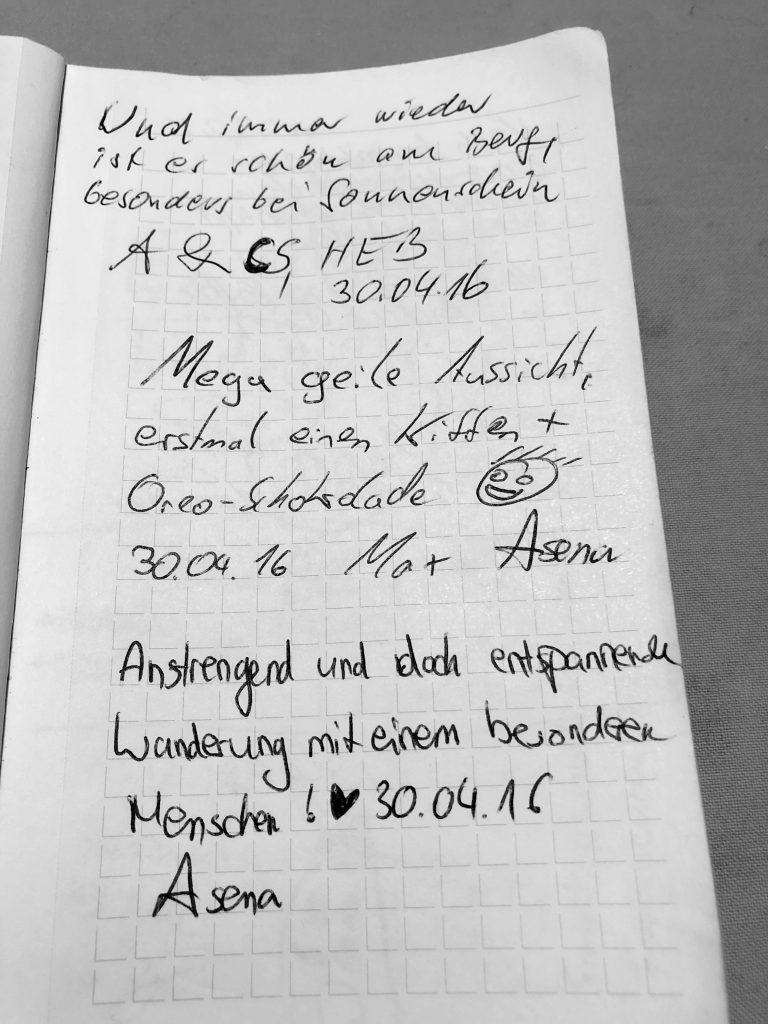 Und immer wieder
ist er schön am Berg,
besonders bei Sonnenschein
A & CS, HEB
30.04.16
Mega geile Aussicht,
erstmal einen Kiffen +
Oreo-Schokolade
30.04.16 Max Asena
Anstrengend und doch entspannende
Wanderung mit einem besonderen
Menschen! ♥ 30.04.16
Asena